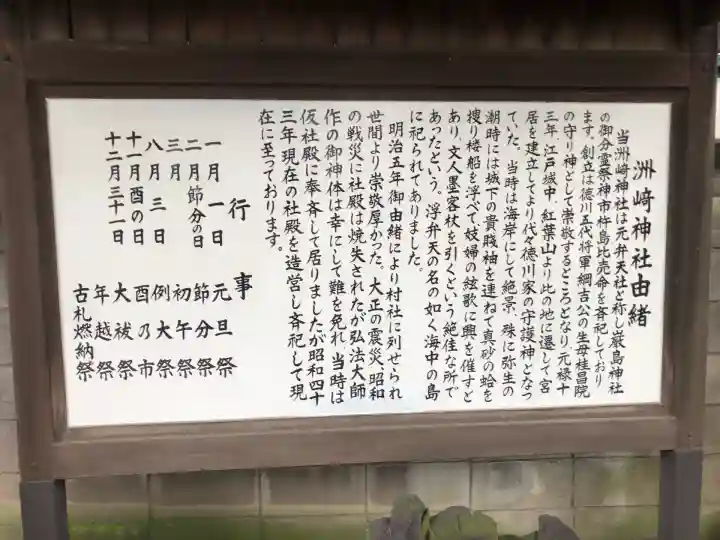 洲崎神社由緒
当洲崎神社は元弁天社と称し厳島神社
の御分霊祭神市杵島比売命を斉祀しており
ます。創立は徳川五代将軍綱吉公の生母桂昌院
の守り神として崇敬するところとなり、元禄十
三年、江戸城中、紅葉山より此の地に遷して宮
居を建立してより代々徳川家の守護神となっ
ていた。当時は海岸にして絶景、殊に弥生の
潮時には城下の貴賤袖を連ねて真砂の蛤を
捜り楼船を浮べて妓婦の絃歌に興を催すと
あり、文人墨客杖を引くという絶佳な所で
あったという。浮弁天の名の如く海中の島
に祀られてありました。
明治五年御由緒により村社に列せられ
世間より崇敬厚かった。大正の震災、昭和
の戦災に社殿は焼失されたが弘法大師
作の御神体は幸にして難を免れ、当時は
仮社殿に奉斉して居りましたが昭和四十
三年現在の社殿を造営し斉祀して現
在に至っております。
行事
一月一日 元旦祭
二月節分の日 節分祭
三月 初午祭
八月三日 例大祭
十一月酉の日 酉乃市
十二月三十一日 大祓祭
年越祭
古札燃納祭